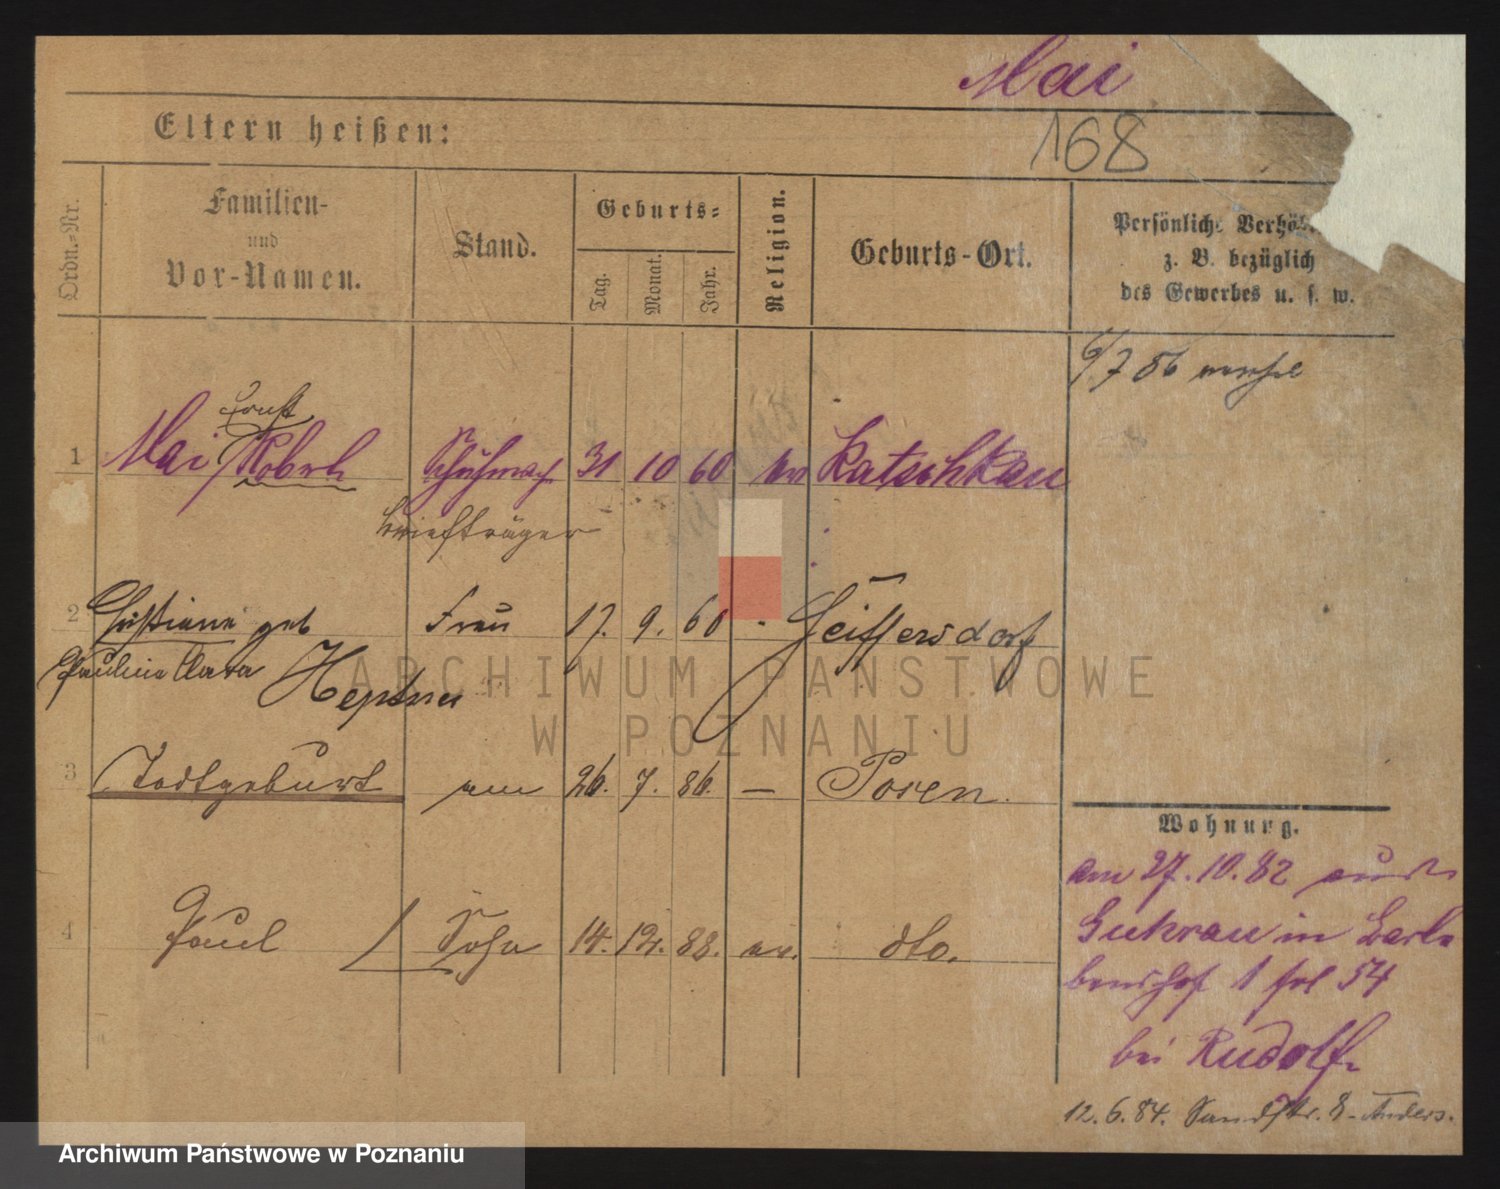 Mai
168
Eltern heißen:
Ordn.-Nr.
Familien-
und
Vor-Namen.
Stand.
Geburts-
Tag.
Monat.
Jahr.
Religion.
Geburts-Ort.
Persönliche Verhä
z. B. bezüglich
des Gewerbes u. s. w.
6/7 86
Ernst
1 Mai Robert Schuhmach 31 10 60 ev Katschkau
briefträger
2 Christiane geb Frau 17. 9. 60 Geiffersdorf
Pauline Clara Heptner
3 Todtgeburt am 26. 7. 86. — Posen.
4 Paul Sohn 14. 12. 88. ev. dto.
Wohnung.
am 27.10.82 aus
Guhrau in
1 54
bei Rudolf
12.6.84. Sandstr. 8 - Anders.
ARCHIWUM PAŃSTWOWE
W POZNANIU
Archiwum Państwowe w Poznaniu